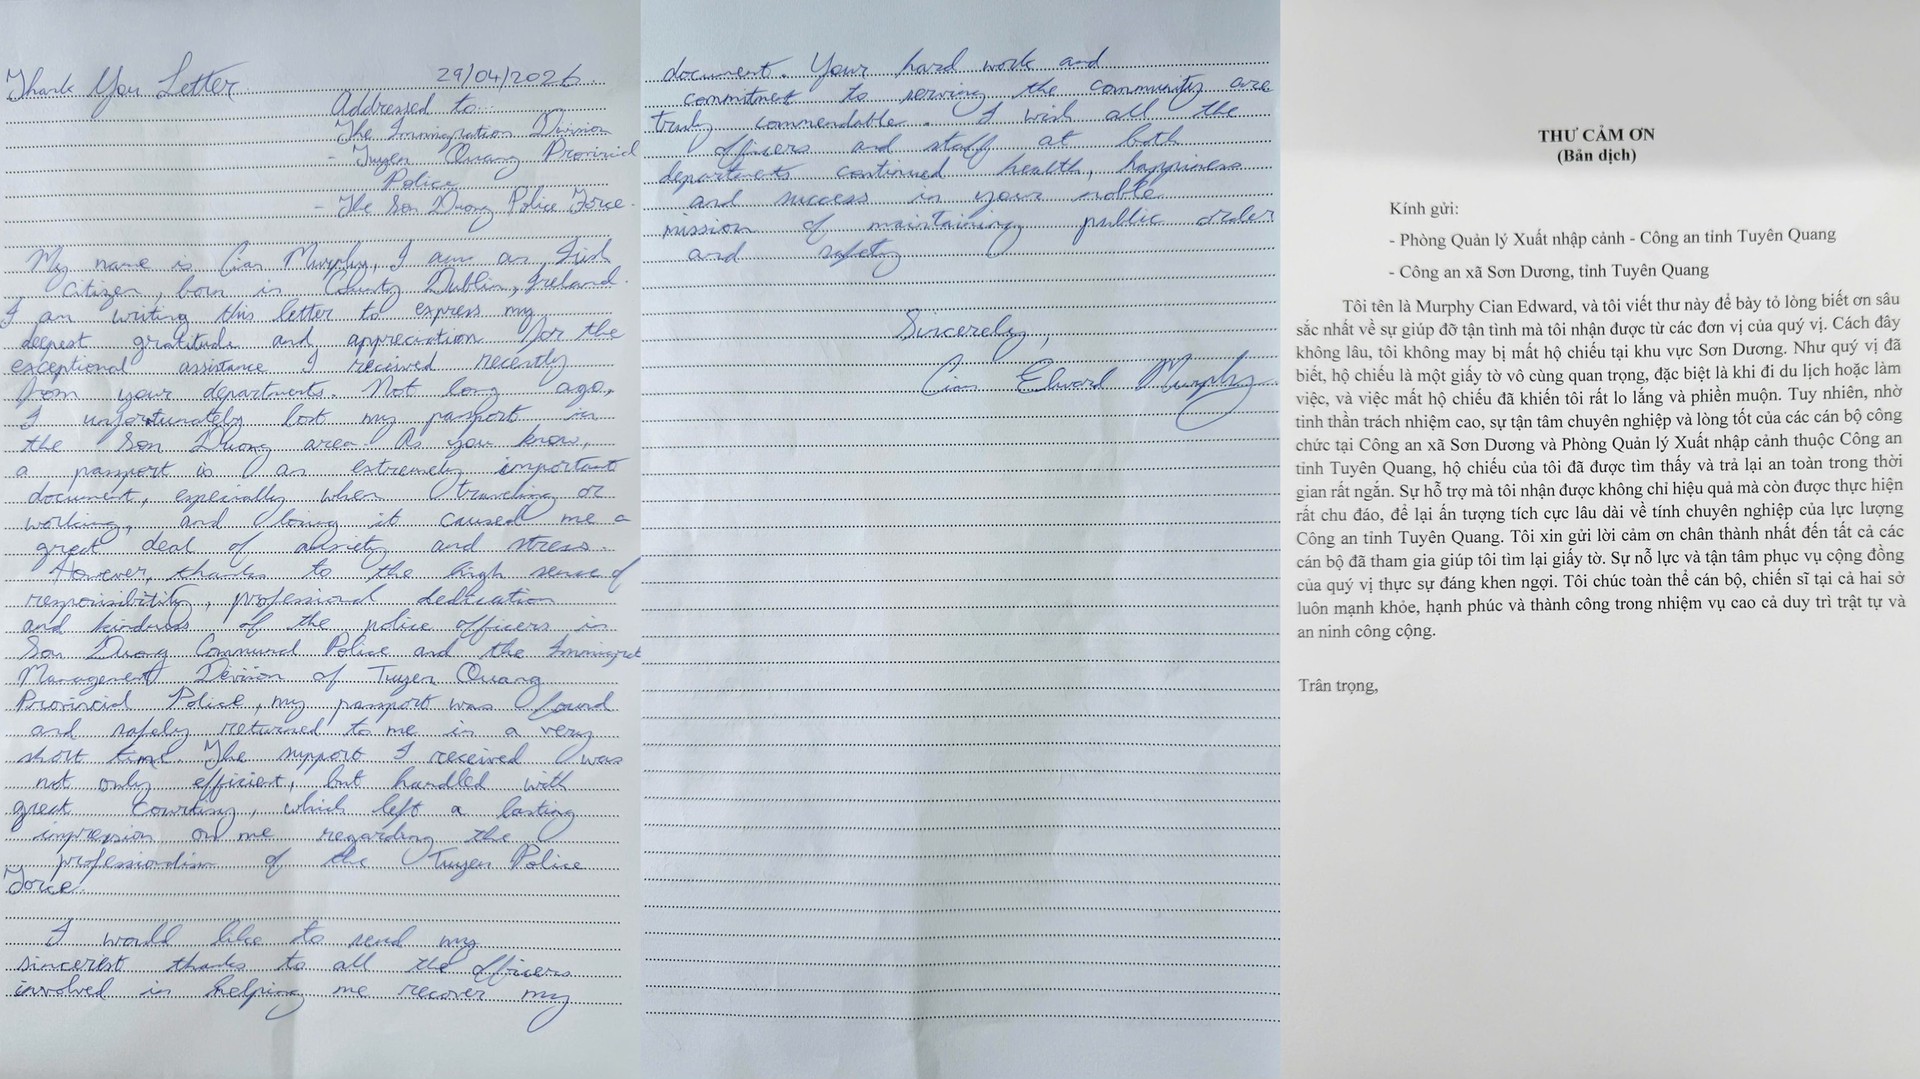 Thank You Letter
29/04/2026
Addressed to:
The Immigration Division
- Tuyen Quang Provincial
Police
- The Son Duong Police Force.
My name is Cian Murphy, I am an Irish
Citizen, born in County Dublin, Ireland.
I am writing this letter to express my
deepest gratitude and appreciation for the
exceptional assistance I received recently
from your departments. Not long ago,
I unfortunately lost my passport in
the Son Duong area. As you know,
a passport is an extremely important
document, especially when traveling or
working, and losing it caused me a
great deal of anxiety and stress.
However, thanks to the high sense of
responsibility, professional dedication
and kindness of the police officers in
Son Duong Communal Police and the
Management Division of Tuyen Quang
Provincial Police, my passport was found
and safely returned to me in a very
short time. The support I received was
not only efficient, but handled with
great, which left a lasting
impression on me regarding the
professionalism of the Tuyen Police
Force.
I would like to send my
sincerest thanks to all the officers
involved in helping me recover my
document. Your hard work and
commitment to serving the community are
truly commendable. I wish all the
officers and staff at both
departments continued health, happiness
and success in your noble
mission of maintaining public order
and safety
Sincerely,
Cian Edward Murphy
THƯ CẢM ƠN
(Bản dịch)
Kính gửi:
- Phòng Quản lý Xuất nhập cảnh - Công an tỉnh Tuyên Quang
- Công an xã Sơn Dương, tỉnh Tuyên Quang
Tôi tên là Murphy Cian Edward, và tôi viết thư này để bày tỏ lòng biết ơn sâu
sắc nhất về sự giúp đỡ tận tình mà tôi nhận được từ các đơn vị của quý vị. Cách đây
không lâu, tôi không may bị mất hộ chiếu tại khu vực Sơn Dương. Như quý vị đã
biết, hộ chiếu là một giấy tờ vô cùng quan trọng, đặc biệt là khi đi du lịch hoặc làm
việc, và việc mất hộ chiếu đã khiến tôi rất lo lắng và phiền muộn. Tuy nhiên, nhờ
tinh thần trách nhiệm cao, sự tận tâm chuyên nghiệp và lòng tốt của các cán bộ công
chức tại Công an xã Sơn Dương và Phòng Quản lý Xuất nhập cảnh thuộc Công an
tỉnh Tuyên Quang, hộ chiếu của tôi đã được tìm thấy và trả lại an toàn trong thời
gian rất ngắn. Sự hỗ trợ mà tôi nhận được không chỉ hiệu quả mà còn được thực hiện
rất chu đáo, để lại ấn tượng tích cực lâu dài về tính chuyên nghiệp của lực lượng
Công an tỉnh Tuyên Quang. Tôi xin gửi lời cảm ơn chân thành nhất đến tất cả các
cán bộ đã tham gia giúp tôi tìm lại giấy tờ. Sự nỗ lực và tận tâm phục vụ cộng đồng
của quý vị thực sự đáng khen ngợi. Tôi chúc toàn thể cán bộ, chiến sĩ tại cả hai sở
luôn mạnh khỏe, hạnh phúc và thành công trong nhiệm vụ cao cả duy trì trật tự và
an ninh công cộng.
Trân trọng,